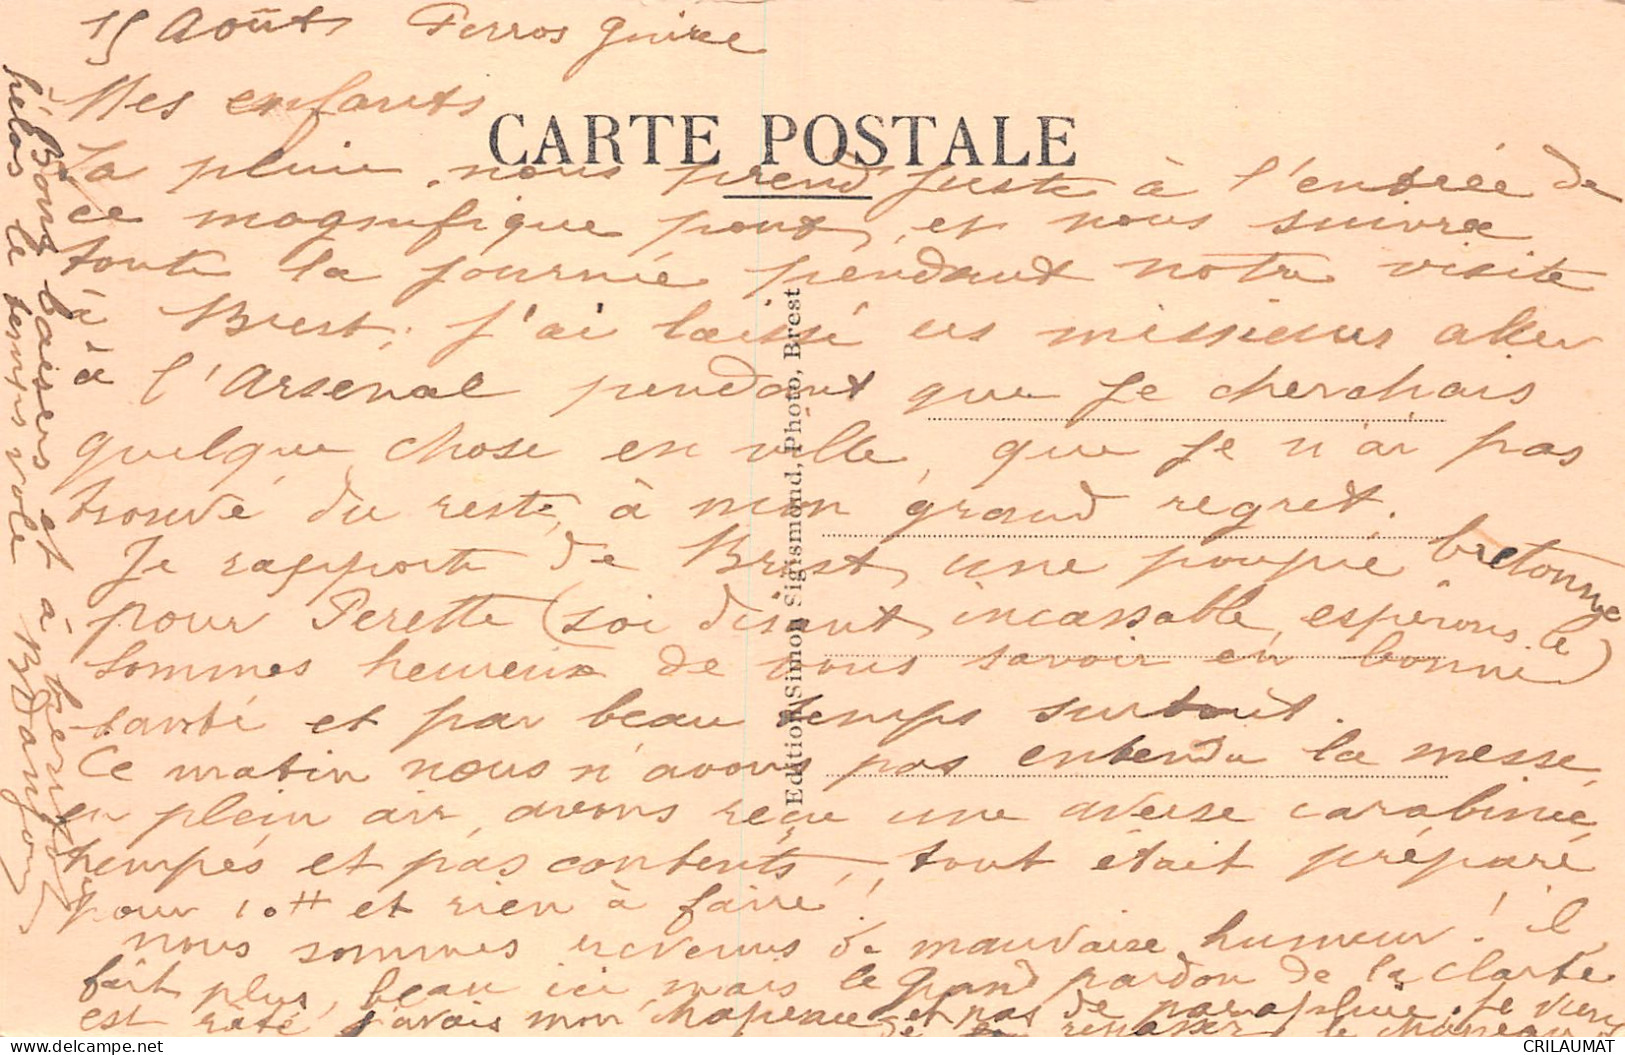 15 Août Perros Guirec
Mes enfants
CARTE POSTALE
La pluie nous prend juste à l'entrée de
ce magnifique pont, et nous suivra
toute la journée pendant notre visite
à Brest, j'ai laissé ces messieurs aller
à l'Arsenal pendant que je cherchais
quelque chose en ville, que je n'ai pas
trouvé du reste, à mon grand regret.
Je rapporte de Brest, une poupée bretonne
pour Perette (soi disant incassable, espérons le)
sommes heureux de vous savoir en bonne
santé et par beau temps surtout.
Ce matin nous n'avons pas entendu la messe,
en plein air, avons reçu une averse carabinée,
trempés et pas contents, tout était préparé
pour 10H et rien à faire!
nous sommes revenus de mauvaise humeur! il
fait plus beau ici mais le grand pardon de la Clarté
est raté j'avais mon chapeau et pas de parapluie. je viens
de repasser le chapeau
Bons baisers et à bientôt
hélas le temps vole
Edition Simon Sigismond, Photo, Brest
CRILAUMAT